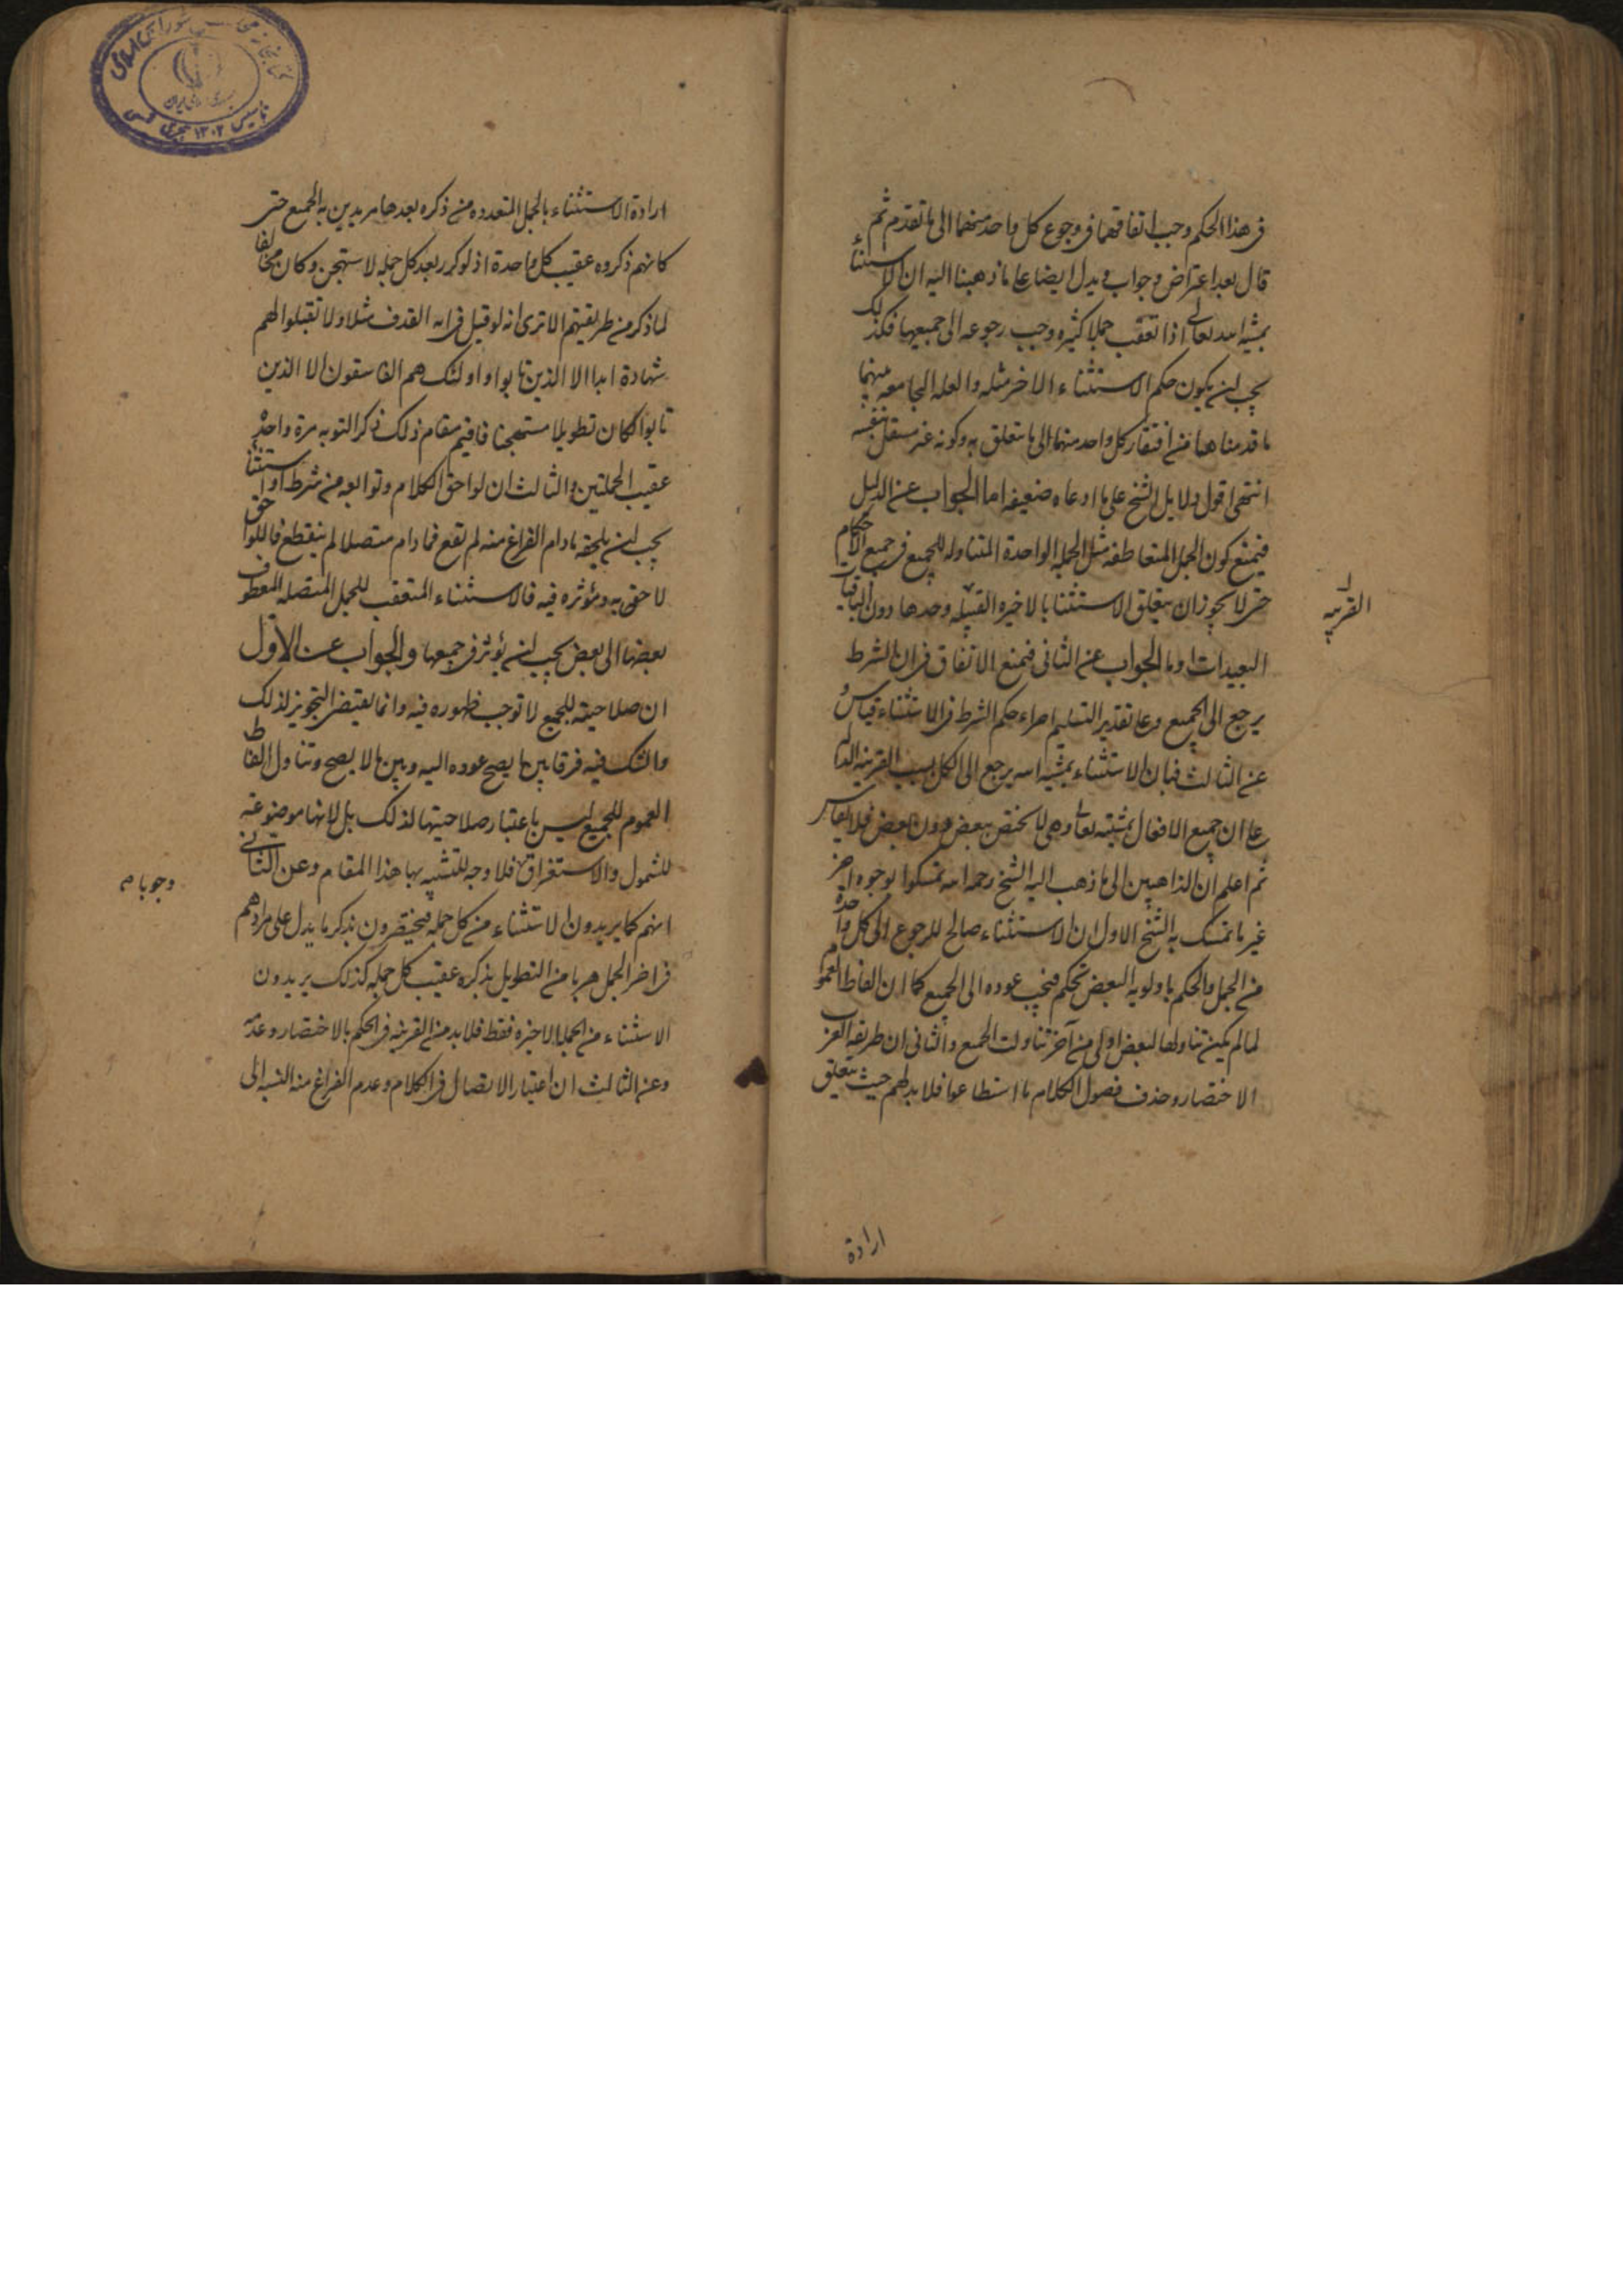 فى هذا الحكم وجب اتفاقهما فى وجوع كل واحد منهما الى ما تقدم ثم
قال بعد اعتراض وجواب ويدل ايضا على ما ذهبنا اليه ان الاستثناء
بمشية الله تعالى اذا تعقب جملا كثيره وجب رجوعه الى جميعها فكذلك
يجب ان يكون حكم الاستثناء الاخر مثله والعله الجامعه بينهما
ما قدمناها من افتقار كل واحد منهما الى ما يتعلق به وكونه غير مستقل بنفسه
انتهى اقول دلايل الشيخ على ما ادعاه ضعيفه اما الجواب عن الدليل
فيمنع كون الجمل المتعاطفه مثل الجمله الواحدة المتناوله للجميع فى جميع الاحكام
حتى لا يجوز ان يتعلق الاستثنا بالاخيره القبيله وحدها دون الباقيات
القريبه
البعيدات واما الجواب عن الثانى فبمنع الاتفاق فى ان الشرط
يرجع الى الجميع وعلى تقدير التسليم اجراء حكم الشرط فى الاستثناء قياس و
عن الثالث فبان الاستثناء بمشية الله يرجع الى الكل بسبب القرينه الدالة
على ان جميع الافعال بمشيته تعالى وهى لا تختص ببعض دون بعض فلا يقاس
ثم اعلم ان الذاهبين الى ما ذهب اليه الشيخ رحمه الله تمسكوا بوجوه اخر
غير ما تمسك به الشيخ الاول ان الاستثناء صالح للرجوع الى كل واحدة
من الجمل والحكم باولويه البعض تحكم فيجب عوده الى الجميع كما ان الفاظ العموم
لما لم يكن تناولها لبعض اولى من آخر تناولت الجميع والثانى ان طريقه العرب
الاختصار وحذف فصول الكلام ما استطاعوا فلا بد لهم حيث يتعلق
ارادة
ارادة الاستثناء بالجمل المتعدده من ذكره بعدها مريدين به الجميع حتى
كانهم ذكروه عقيب كل واحدة اذ لو كرر بعد كل جمله لاستهجن وكان مخالفا
لما ذكر من طريقتهم الا ترى انه لو قيل فى ايه القذف مثلا ولا تقبلوا لهم
شهادة ابدا الا الذين تابوا واولئك هم الفاسقون الا الذين
تابوا لكان تطويلا مستهجنا فاقيم مقام ذلك ذكر التوبه مرة واحدة
عقيب الجملتين والثالث ان لواحق الكلام وتوابعه من شرط او استثناء
يجب ان يلحقه ما دام الفراغ منه لم يقع فما دام متصلا لم ينقطع فاللواحق
لاحق به ومؤثره فيه فالاستثناء المتعقب للجمل المتصله المعطوف
بعضها الى بعض يجب ان يؤثر فى جميعها والجواب عن الاول
ان صلاحيته للجميع لا توجب ظهوره فيه وانما يقتضى التجويز لذلك
والشك فيه فرقا بين ما يصح عوده اليه وبين ما لا يصح وتناول الفاظ
العموم للجميع ليس باعتبار صلاحيتها لذلك بل لانها موضوعة
للشمول والاستغراق فلا وجه للتشبيه بها هذا المقام وعن الثانى
وجوبا م
انهم كما يريدون الاستثناء من كل جمله فيختصرون بذكر ما يدل على مرادهم
فى اخر الجمل هربا من التطويل بذكره عقيب كل جمله كذلك يريدون
الاستثناء من الجمله الاخيره فقط فلا بد من القرينه فى الحكم بالاختصار وعدمه
وعن الثالث ان اعتبار الاتصال فى الكلام وعدم الفراغ منه النسبه الى